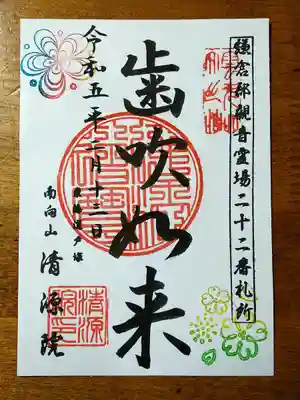 鎌倉郡観音霊場二十二番札所
歯吹如来
令和五年二月十三日
東海道戸塚
南向山 清源院
清源院印